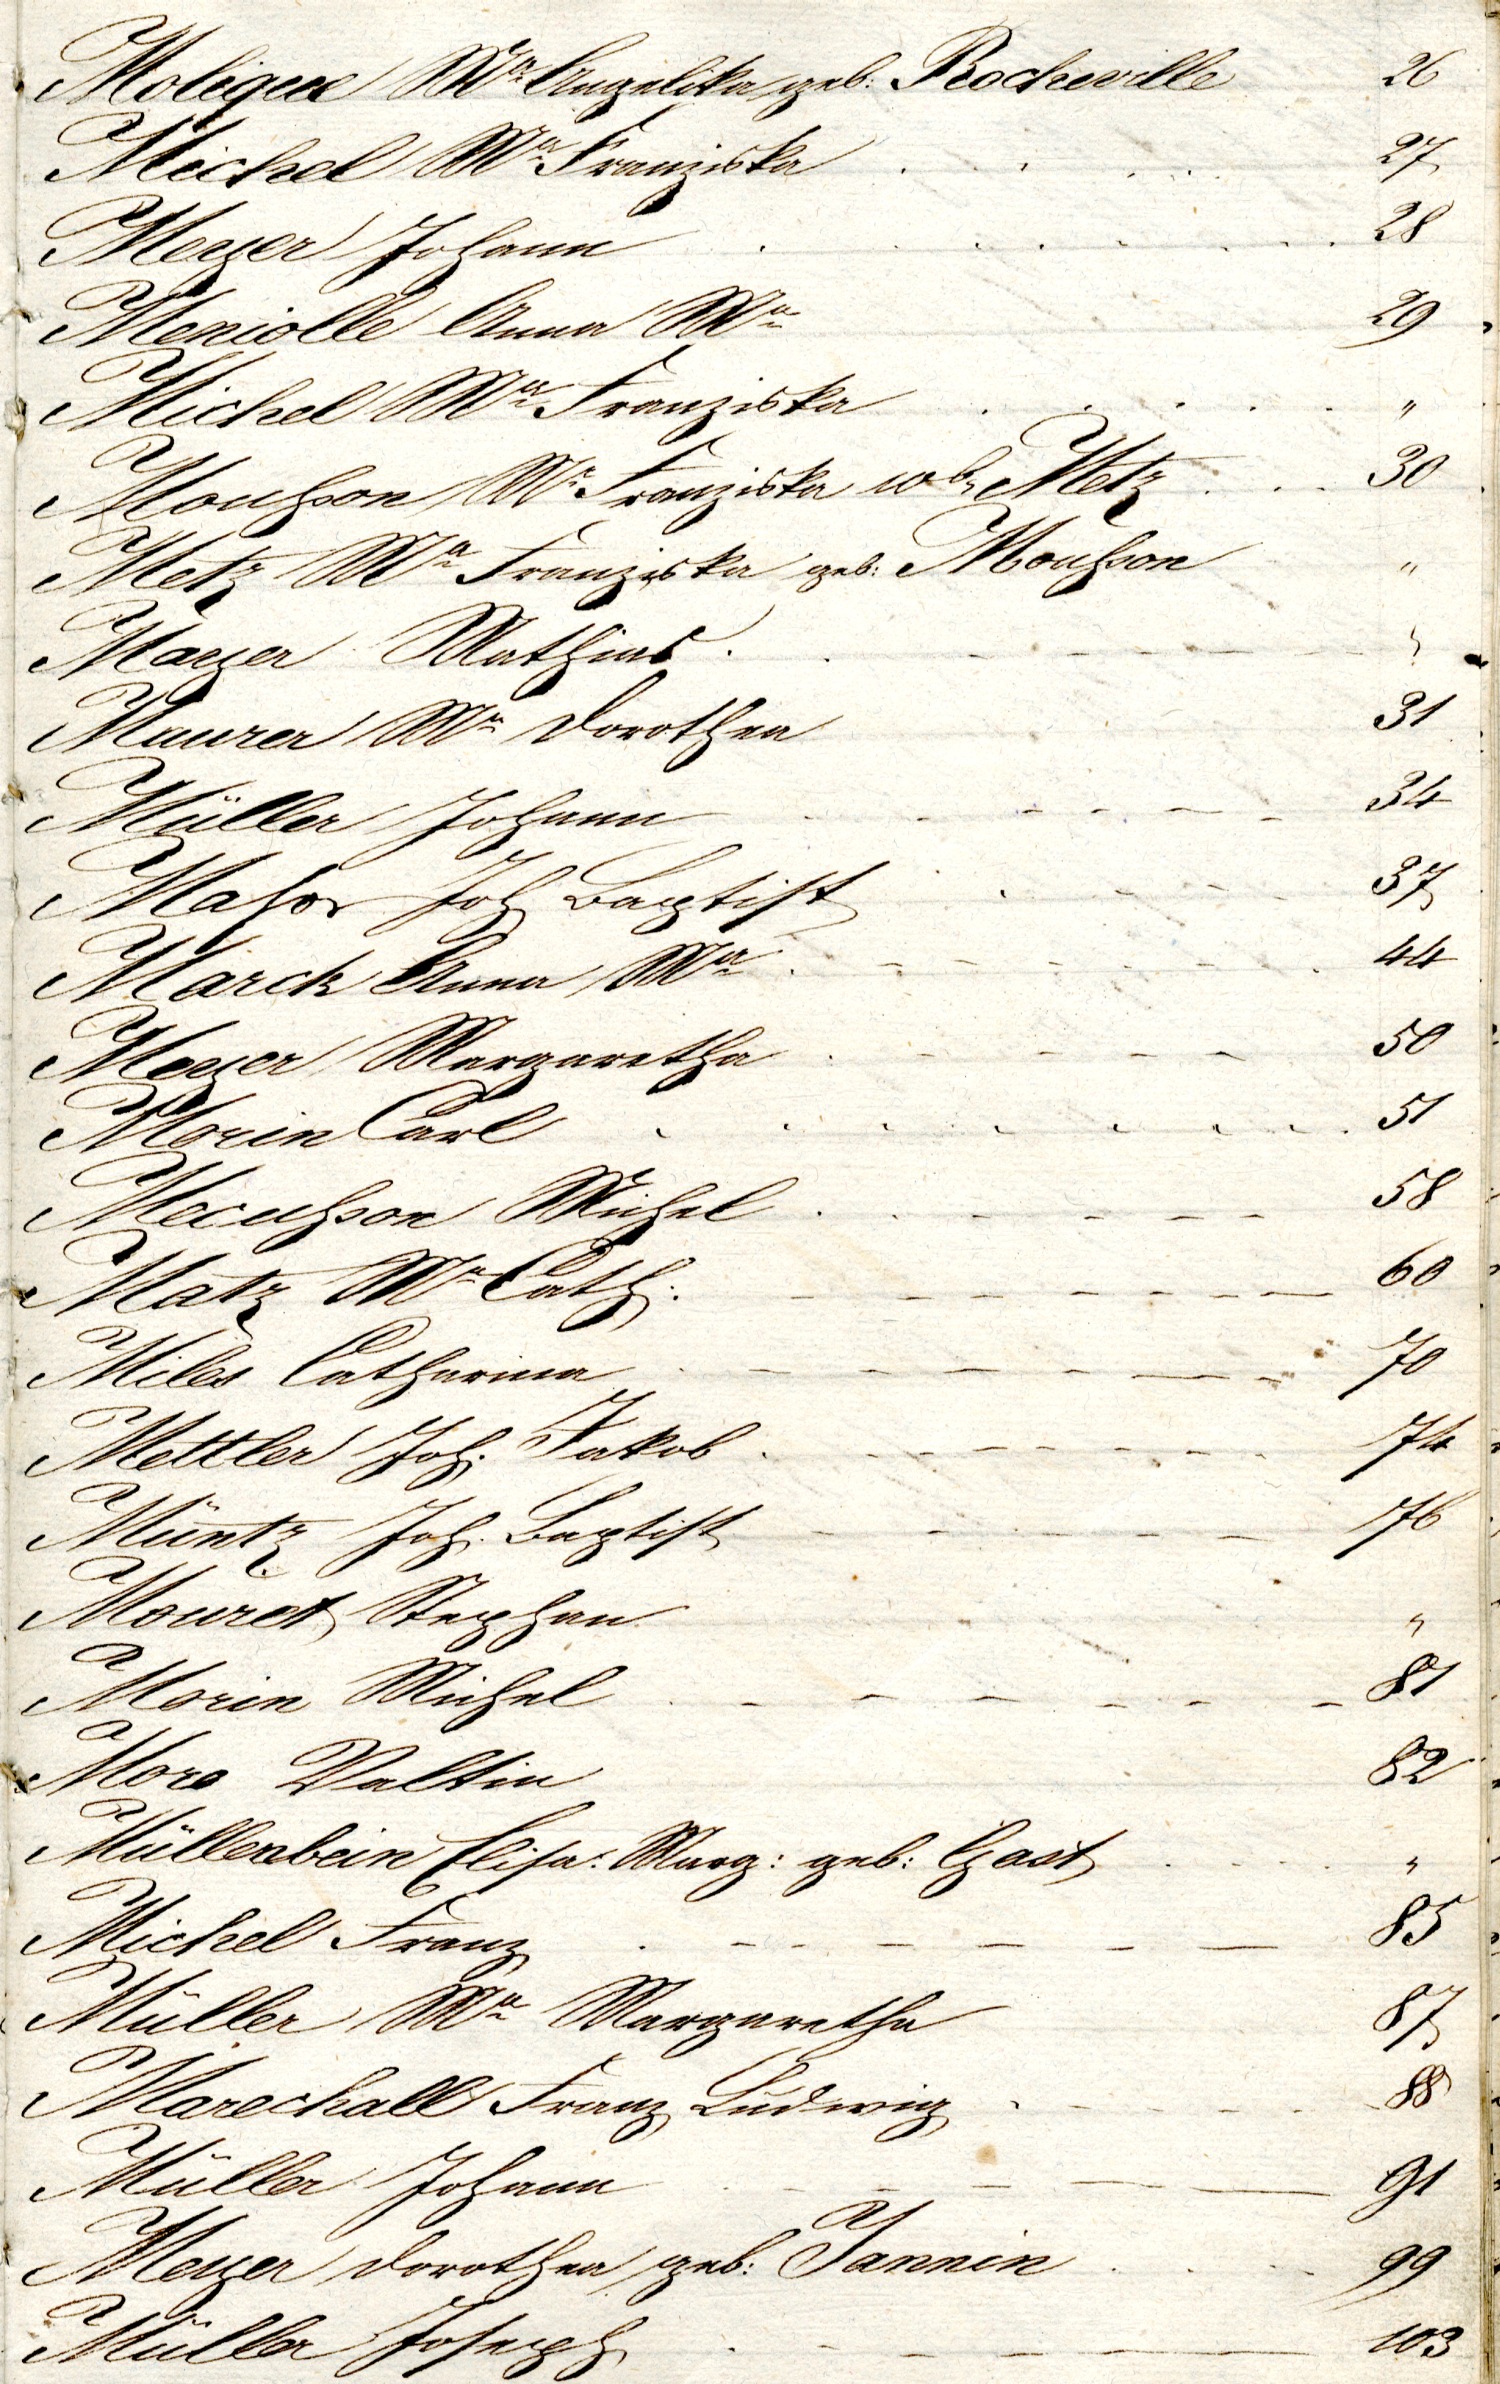 Molique Ma Angelika geb: Rocheville 26
Michel Ma Franziska 27
Meyer Johann 28
Meniolle Anna Ma 29
Michel Ma Franziska "
Mouhson Ma Franziska wb. Metz 30
Metz Ma Franziska geb: Mouhson "
Mayer Mathias "
Maurer Ma Dorothea 31
Müller Johann 34
Joh Baptist 37
Marck Anna Ma 44
Meyer Margaretha 50
Morin Carl 51
Michel 58
Matz Ma Cath: 60
Miles Catharina 70
Mettler Joh. Jakob 74
Müntz Joh. Baptist 76
Mouret Stephan "
Morin Michel 81
Moro Valtin 82
Müllenbein Elisa: Marg: geb: Gast "
Michel Franz 85
Müller Ma Margaretha 87
Marechall Franz Ludwig 88
Müller Johann 91
Meyer Dorothea geb: Jannin 99
Müller Joseph 103